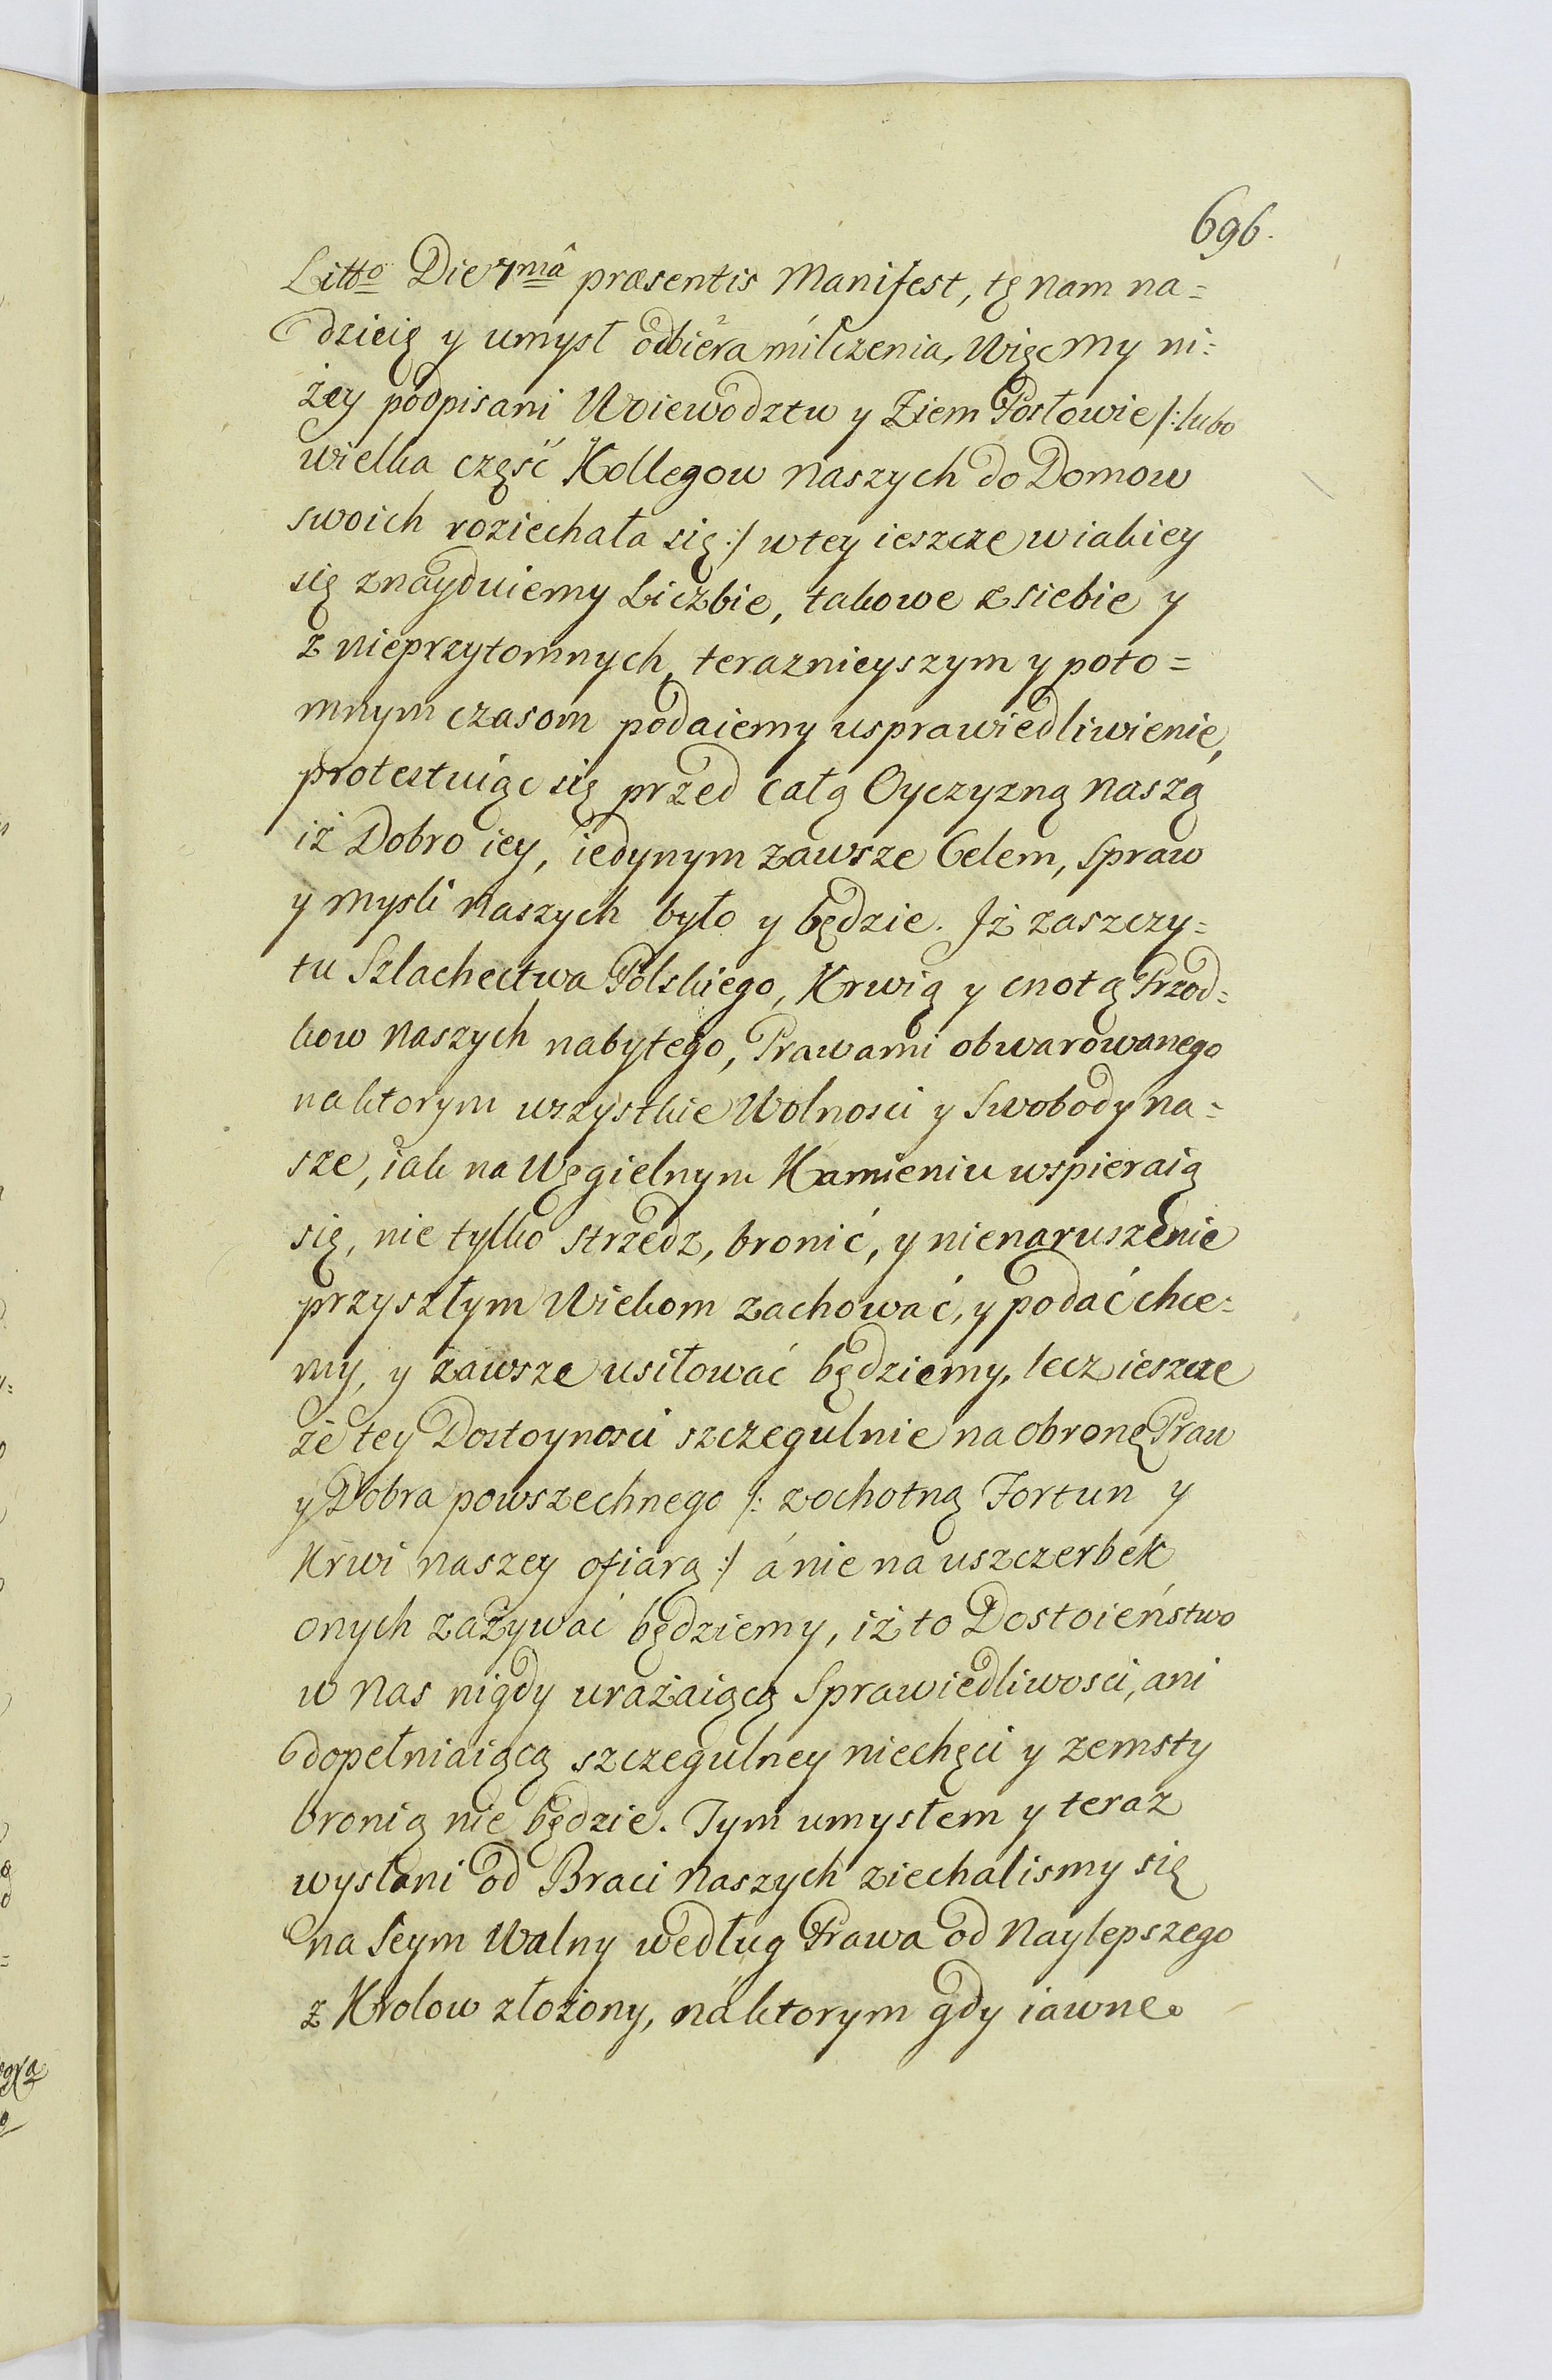 696.
Litto Die 7mâ præsentis Manifest, tę nam na=
dzieię y umysł odbiera milczenia, Więc my ni=
żey podpisani Woiewodztw y Ziem Posłowie /: lubo
wielka część Kollegow naszych do Domow
swoich roziechała się :/ w tey ieszcze w iakiey
się znayduiemy Liczbie, takowe z siebie y
z nieprzytomnych, teraznieyszym y poto=
mnym czasom podaiemy usprawiedliwienie,
protestuiąc się przed całą Oyczyzną naszą
iż Dobro iey, iedynym zawsze Celem, Spraw
y mysli naszych było y będzie. Iż zaszczy=
tu Szlachectwa Polskiego, Krwią y cnotą Przod=
kow naszych nabytego, Prawami obwarowanego
na ktorym wszystkie Wolnosci y Swobody na=
sze, iak na Węgielnym Kamieniu wspieraią
się, nie tylko strzedz, bronić, y nienaruszenie
przyszłym Wiekom zachować, y podać chce=
my, y zawsze usiłować będziemy, lecz ieszcze
że tey Dostoynosci szczegulnie na obronę Praw
y Dobra powszechnego /: z ochotną Fortun y
Krwi naszey ofiarą :/ á nie na uszczerbek
onych zażywać będziemy, iż to Dostoieństwo
w nas nigdy urażaiącą Sprawiedliwosci, ani
dopełniaiącą szczegulney niechęci y zemsty
bronią nie będzie. Tym umysłem y teraz
wysłani od Braci naszych ziechalismy się
na Seym Walny według Prawa od Naylepszego
z Krolow złożony, ná ktorym gdy iawne